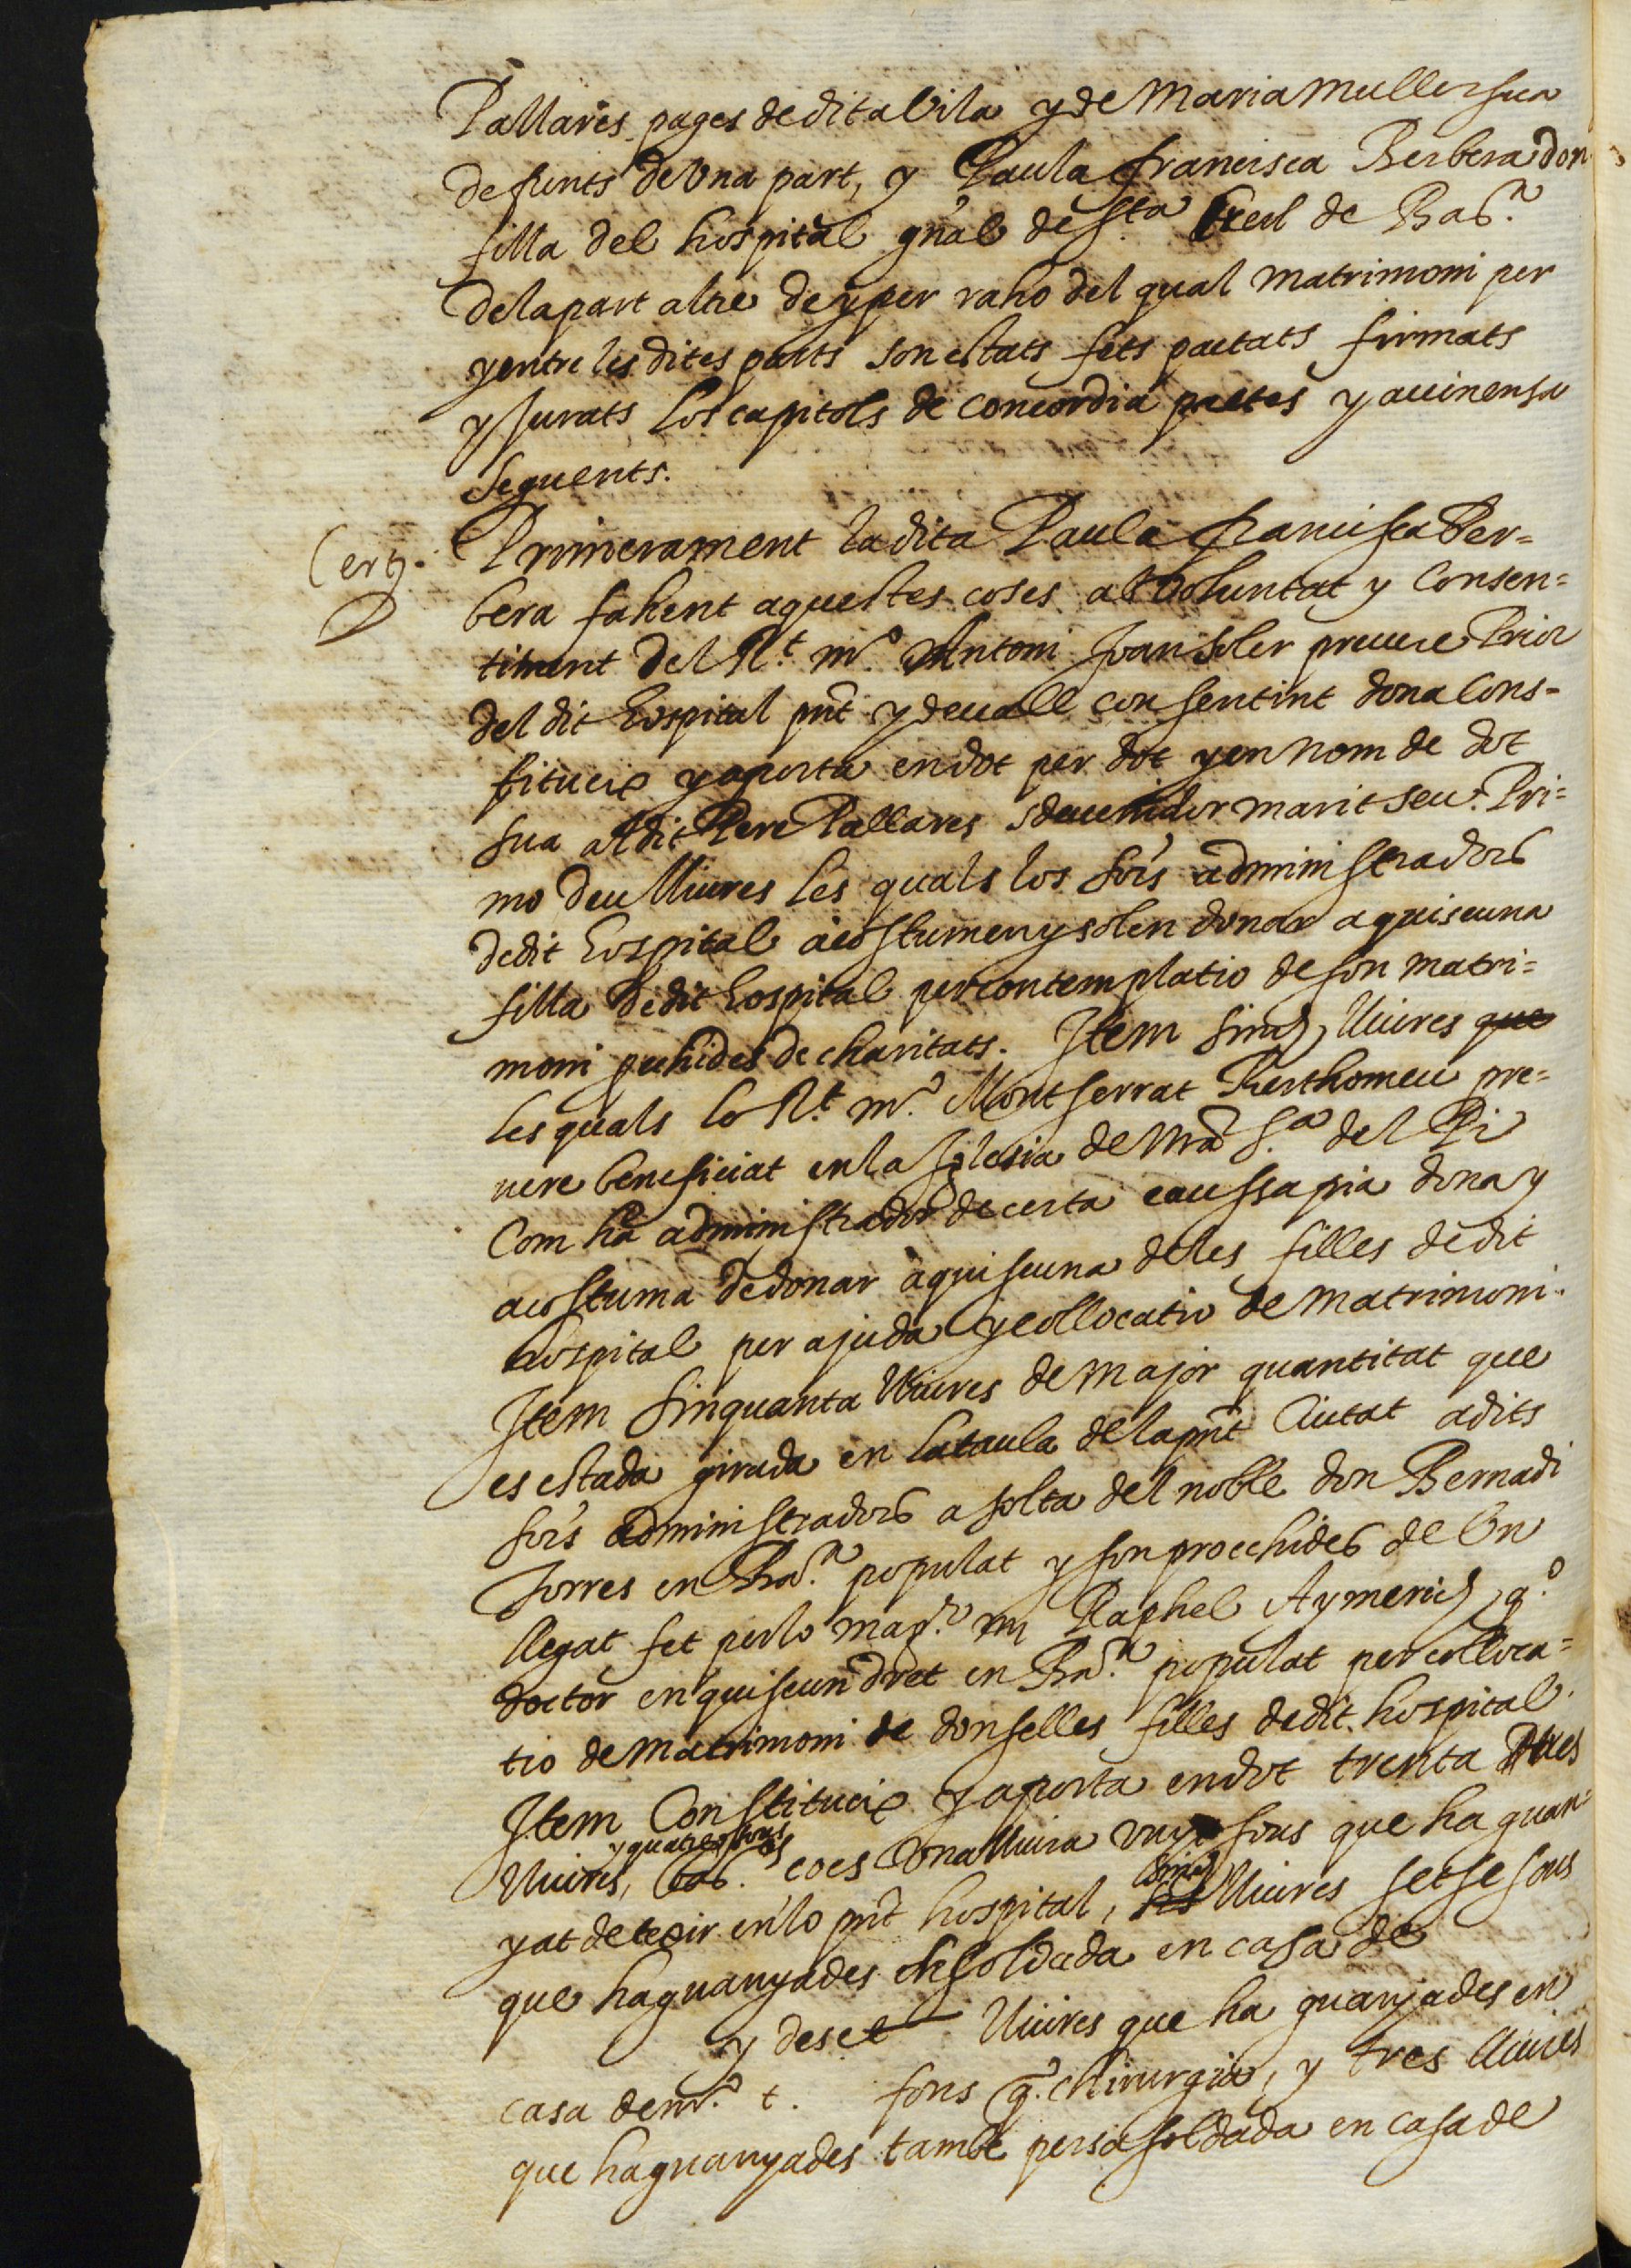 Pallares pages de dita Vila y de Maria Muller sua
defunts de Una part, y Paula francisca Berbera don
filla del hospital gñal de Sta Creu de Barª
de la part altre de y per raho del qual matrimoni per
y entre les dites parts son estats fets pactats firmats
y jurats los capitols de concordia pactes y avinensa
seguents.
Primerament la dita Paula francisca Ber=
bera fahent aquestes coses ab voluntat y consen=
timent del R.t m.º Antoni Joan soler prevere Prior
del dit hospital pñt y devall consentint dona Cons=
titueix y aporta en dot per dot y en nom de dot
sua al dit Pere Pallares sdevenidor marit seu. Pri=
mo deu lliures les quals los sors administradors
de dit hospital acostumen y solen donar a quiscuna
filla de dit hospital per contemplatio de son matri=
moni prehides de charitats. Item sinch lliures que
les quals lo R.t m.º Montserrat Berthomeu pre=
vere beneficiat en la Iglesia de nrã S.ª del Pi
Com ha administrador de certa caussa pia dona y
acostuma de donar a quiscuna de les filles de dit
hospital per ajuda y collocatio de matrimoni.
Item sinquanta lliures de major quantitat que
es estada girada en la taula de la pñt Ciutat a dits
sors administradors a solta del noble don Bernadi
Torres en Barª populat y son procehides de Un
llegat fet per lo mag.ch m Raphel Aymerich q.º
doctor en quiscun dret en Barª populat per colloca=
tio de matrimoni de donselles filles de dit hospital.
Item Constitueix y aporta en dot trenta tres
y quatre sous
lliures, coes Una lliura vuyt sous que ha guan=
sinch
yat de texir en lo pñt hospital, lliures setse sous
que ha guanyades de soldada en casa de
y deset lliures que ha guanyades en
casa de m.º t. fons q.º chirurgia, y tres lliures
que ha guanyades tambe per sa soldada en casa de